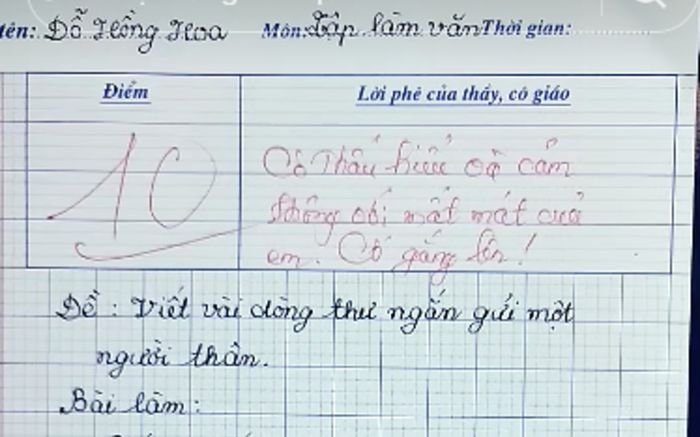 tên: Đỗ Hồng Hoa Môn: Tập làm văn Thời gian:
Điểm
Lời phê của thầy, cô giáo
10
Cô Thấu hiểu và cảm
thông với mất mát của
em. Cố gắng lên!
Đề: Viết vài dòng thư ngắn gửi một
người thân.
Bài làm: